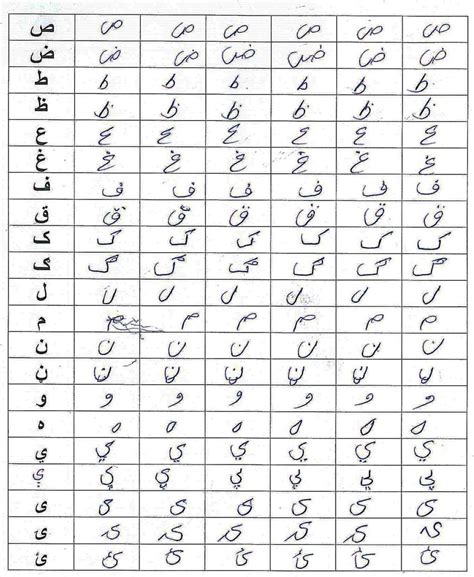 ص ص ص ص ص ص ص
ض ض ض ض ض ض ض
ط ط ط ط ط ط ط
ظ ظ ظ ظ ظ ظ ظ
ع ع ع ع ع ع ع
غ غ غ غ غ غ غ
ف ف ف ف ف ف ف
ق ق ق ق ق ق ق
ک ک ک ک ک ک ک
گ گ گ گ گ گ گ
ل ل ل ل ل ل ل
م م م م م م م
ن ن ن ن ن ن ن
ڼ ڼ ڼ ڼ ڼ ڼ ڼ
و و و و و و و
ه ه ه ه ه ه ه
ي ي ي ي ي ي ي
ې ې ې ې ې ې ې
ی ی ی ی ی ی ی
ۍ ۍ ۍ ۍ ۍ ۍ ۍ
ئ ئ ئ ئ ئ ئ ئ